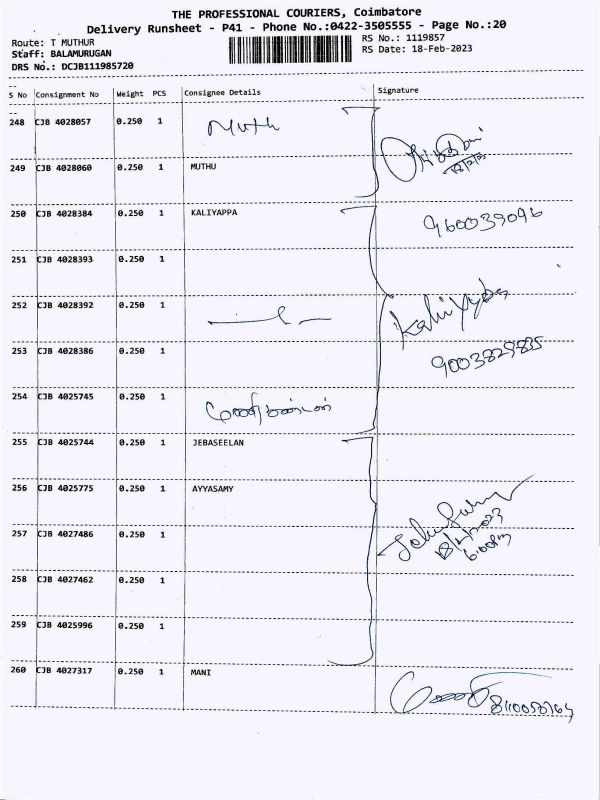 THE PROFESSIONAL COURIERS, Coimbatore
Delivery Runsheet - P41 - Phone No.:0422-3505555 - Page No.:20
Route: T MUTHUR
RS No.: 1119857
Staff: BALAMURUGAN
RS Date: 18-Feb-2023
DRS No.: DCJB111985720
S No Consignment No Weight PCS Consignee Details Signature
248 CJB 4028057 0.250 1 Muth
249 CJB 4028060 0.250 1 MUTHU
250 CJB 4028384 0.250 1 KALIYAPPA
960039096
251 CJB 4028393 0.250 1
252 CJB 4028392 0.250 1
253 CJB 4028386 0.250 1
9003829835
254 CJB 4025745 0.250 1
255 CJB 4025744 0.250 1 JEBASEELAN
256 CJB 4025775 0.250 1 AYYASAMY
257 CJB 4027486 0.250 1
18/2/2023
258 CJB 4027462 0.250 1
259 CJB 4025996 0.250 1
260 CJB 4027317 0.250 1 MANI